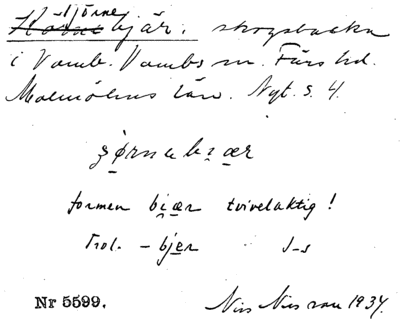 Hjörne
bjär. skogsbacke
i Vomb. Vombs sn. Färs hd.
Malmöhus län. Nyt. s. 4.
formen biær tvivelaktig!
Trol. - bjær J-s
Nr 5599. Nils Nilsson 1934.